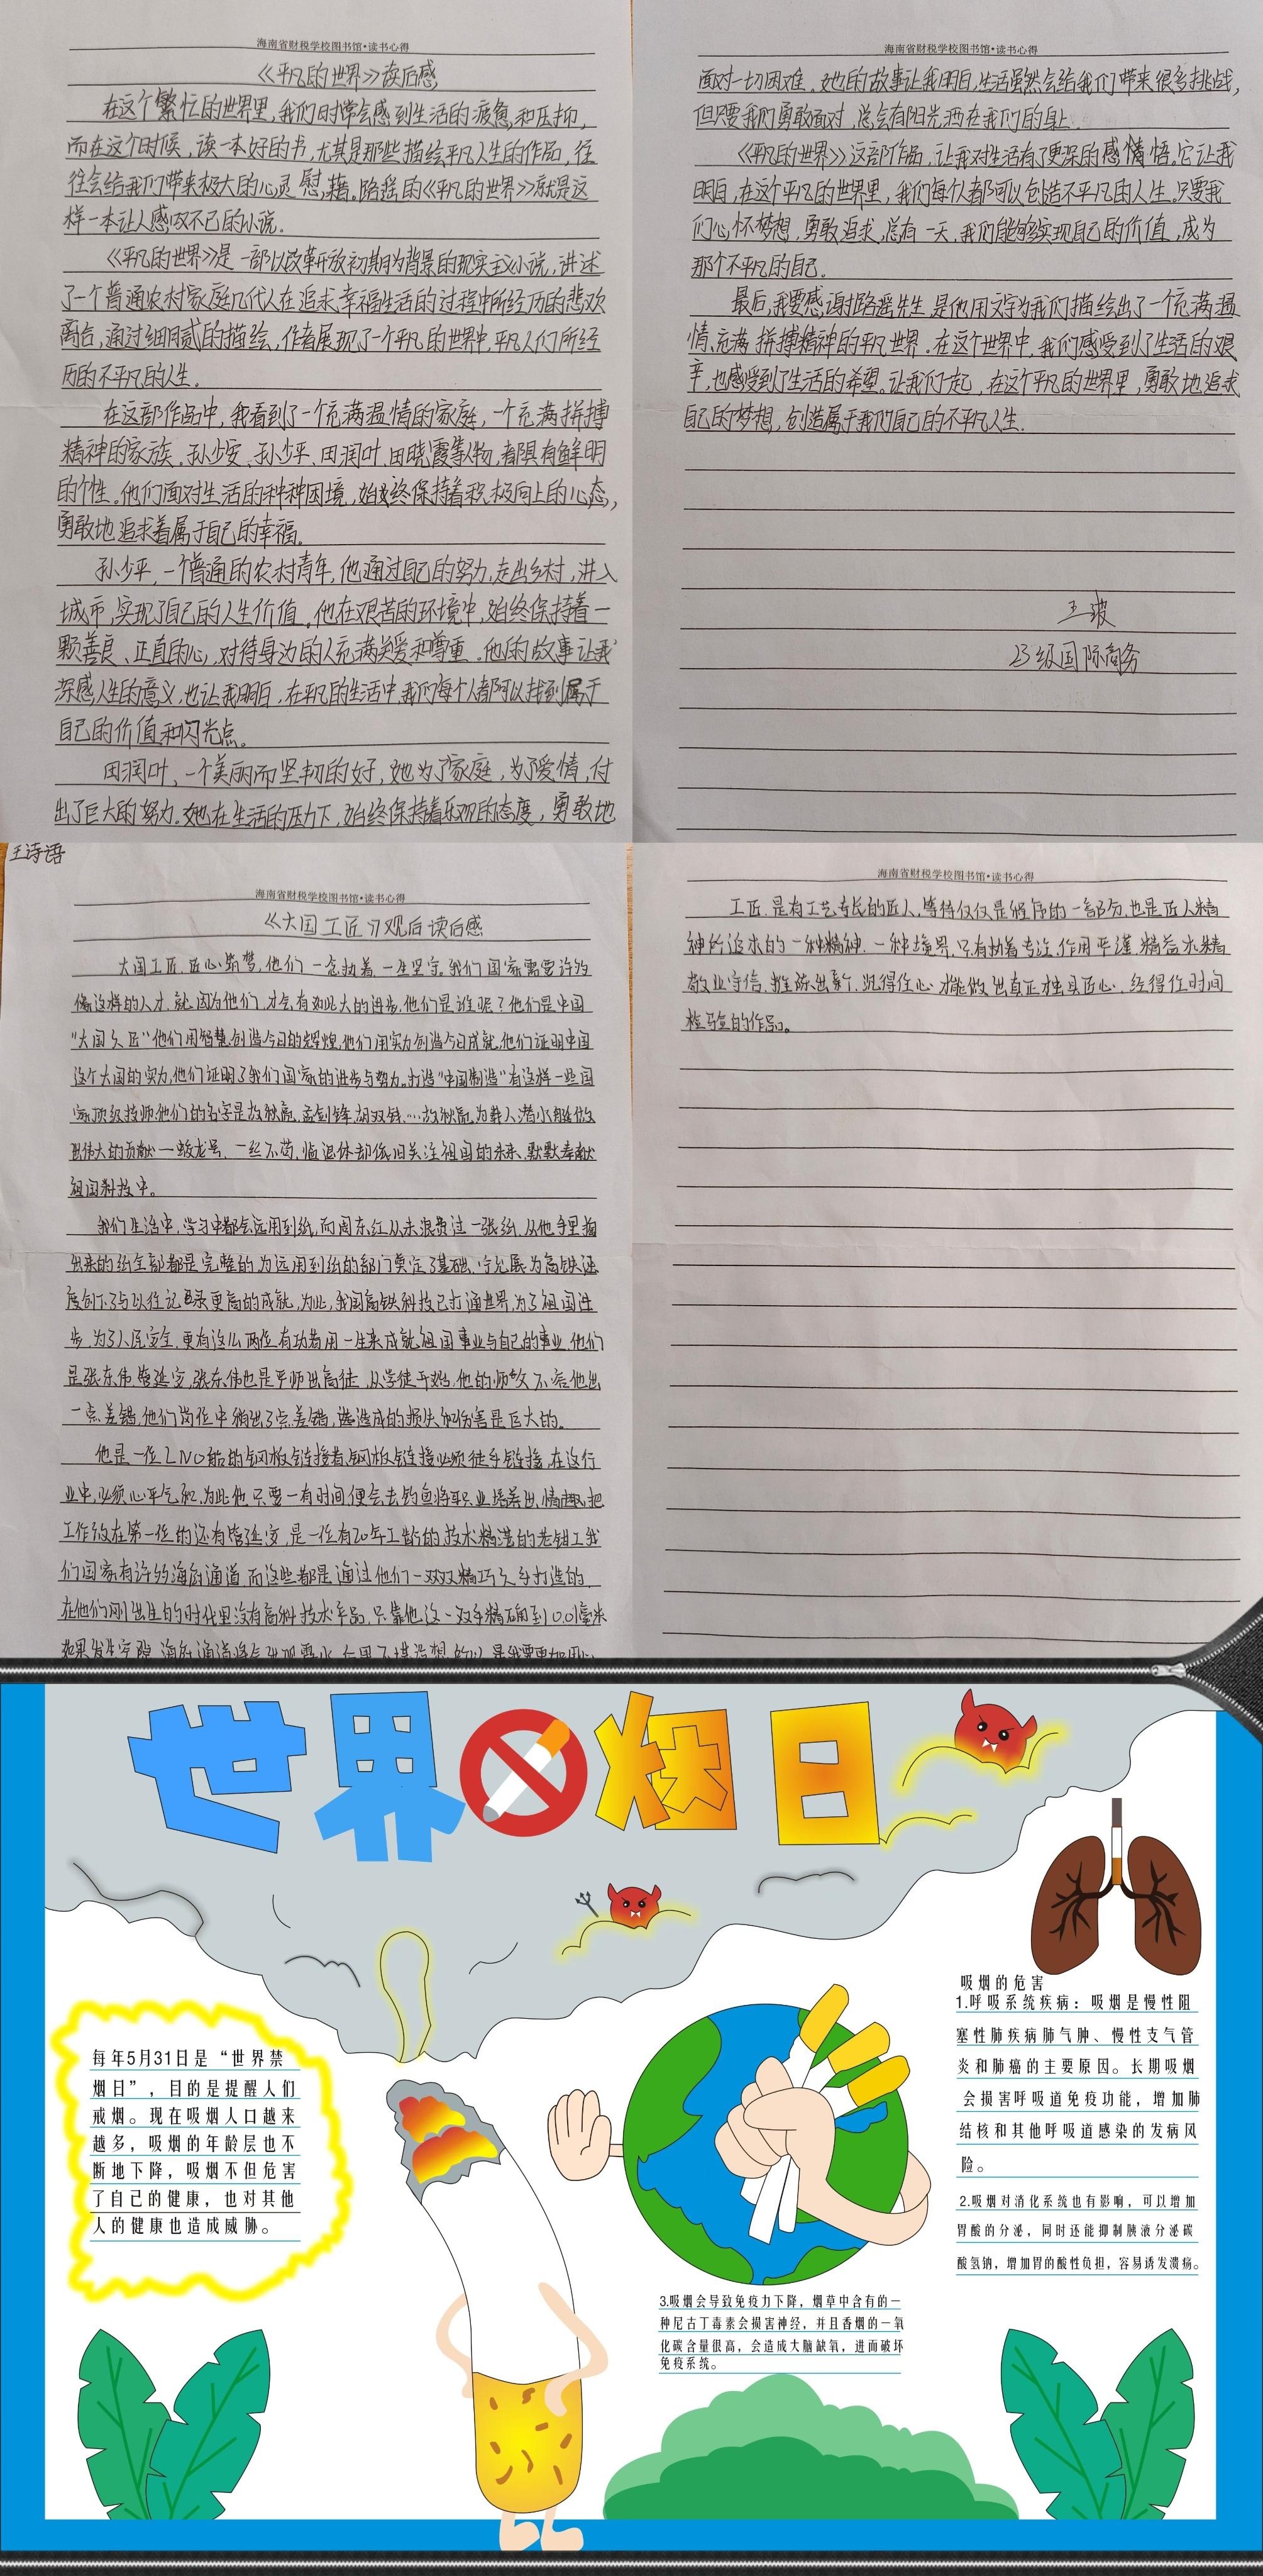 海南省财税学校图书馆•读书心得
《平凡的世界》读后感
在这个繁忙的世界里,我们时常会感到生活的疲惫和压抑,
而在这个时候,读一本好的书,尤其是那些描绘平凡人生的作品,往
往会给我们带来极大的心灵慰藉。路遥的《平凡的世界》就是这
样一本让人感叹不已的小说。
《平凡的世界》是一部以改革开放初期为背景的现实主义小说,讲述
了一个普通农村家庭几代人在追求幸福生活的过程中所经历的悲欢
离合,通过细腻的描绘,作者展现了一个平凡的世界中,平凡人们所经
历的不平凡的人生。
在这部作品中,我看到了一个充满温情的家庭,一个充满拼搏
精神的家族。孙少安、孙少平、田润叶、田晓霞等人物,都具有鲜明
的个性。他们面对生活的种种困境,始终保持着积极向上的心态,
勇敢地追求着属于自己的幸福。
孙少平,一个普通的农村青年,他通过自己的努力,走出乡村,进入
城市,实现了自己的人生价值。他在艰苦的环境中,始终保持着一
颗善良、正直的心,对待身边的人充满关爱和尊重。他的故事让我
深感人生的意义,也让我明白,在平凡的生活中,我们每个人都可以找到属于
自己的价值和闪光点。
田润叶,一个美丽而坚韧的好,她为了家庭,为了爱情,付
出了巨大的努力。她在生活的压力下,始终保持着乐观的态度,勇敢地
海南省财税学校图书馆•读书心得
面对一切困难。她的故事让我明白,生活虽然会给我们带来很多挑战,
但只要我们勇敢面对,总会有阳光洒在我们的身上。
《平凡的世界》这部作品,让我对生活有了更深的感情悟。它让我
明白,在这个平凡的世界里,我们每个人都可以创造不平凡的人生。只要我
们心怀梦想,勇敢追求,总有一天,我们能够实现自己的价值,成为
那个不平凡的自己。
最后,我要感谢路遥先生,是他用文字为我们描绘出了一个充满温
情、充满拼搏精神的平凡世界。在这个世界中,我们感受到了生活的艰
辛,也感受到了生活的希望。让我们一起,在这个平凡的世界里,勇敢地追求
自己的梦想,创造属于我们自己的不平凡人生.
王波
23级国际商务
王诗语
海南省财税学校图书馆•读书心得
《大国工匠》观后读后感
大国工匠,匠心筑梦,他们一念执着,一生坚守。我们国家需要许多
像这样的人才,就因为他们,才会有如此大的进步,他们是谁呢?他们是中国
"大国工匠"他们用智慧创造今日的辉煌,他们用实力创造今日成就,他们证明中国
这个大国的实力,他们证明了我们国家的进步与努力。打造"中国制造"有这样一些国
家顶级技师他们的名字是 孟剑锋,胡双钱,… 为载人潜水艇做
出伟大的贡献一蛟龙号,一丝不苟,临退休却依旧关注祖国的未来,默默奉献
祖国科技中。
我们生活中,学习中都会运用到纸,而周东红从未浪费过一张纸,从他手里捞
出来的纸全部都是完整的为运用到纸的部门奠定了基础,宁允展为高铁速
度创下了与以往记录更高的成就,为此,我国高铁科技已打通世界,为了祖国进
步,为了人民安全,更有这么两位有功者用一生来成就祖国事业与自己的事业,他们
是张东伟,管延安,张东伟也是平师出高徒,从学徒开始,他的师父不容他出
一点差错,他们岗位中稍出了点差错,造成的损失和伤害是巨大的。
他是一位LNG船的钢板链接者,钢板链接必须徒手链接,在这行
业中,必须心平气和,为此他只要一有时间便会去钓鱼将职业培养出情趣,把
工作放在第一位的还有管延安,是一位有20年工龄的技术精湛的老钳工我
们国家有许多海底通道,而这些都是通过他们一双双精巧久手打造的,
在他们刚出生的时代里没有高科技术产品,只靠他这一双手精确到0.01毫米
如果发生空隙,海底通道将会出现露水,后果不堪设想,所以是我要更加用心
海南省财税学校图书馆•读书心得
工匠,是有工艺专长的匠人,等待仅仅是程序的一部分,也是匠人精
神所追求的一种精神,一种境界,只有执着专注,作用严谨,精益求精
敬业守信,推陈出新,沉得住心才能做出真正独具匠心,经得住时间
检验的作品。
世界烟日
每年5月31日是“世界禁
烟日”,目的是提醒人们
戒烟。现在吸烟人口越来
越多,吸烟的年龄层也不
断地下降,吸烟不但危害
了自己的健康,也对其他
人的健康也造成威胁。
吸烟的危害
1.呼吸系统疾病:吸烟是慢性阻
塞性肺疾病肺气肿、慢性支气管
炎和肺癌的主要原因。长期吸烟
会损害呼吸道免疫功能,增加肺
结核和其他呼吸道感染的发病风
险。
2.吸烟对消化系统也有影响,可以增加
胃酸的分泌,同时还能抑制胰液分泌碳
酸氢钠,增加胃的酸性负担,容易诱发溃疡。
3.吸烟会导致免疫力下降,烟草中含有的一
种尼古丁毒素会损害神经,并且香烟的一氧
化碳含量很高,会造成大脑缺氧,进而破坏
免疫系统。